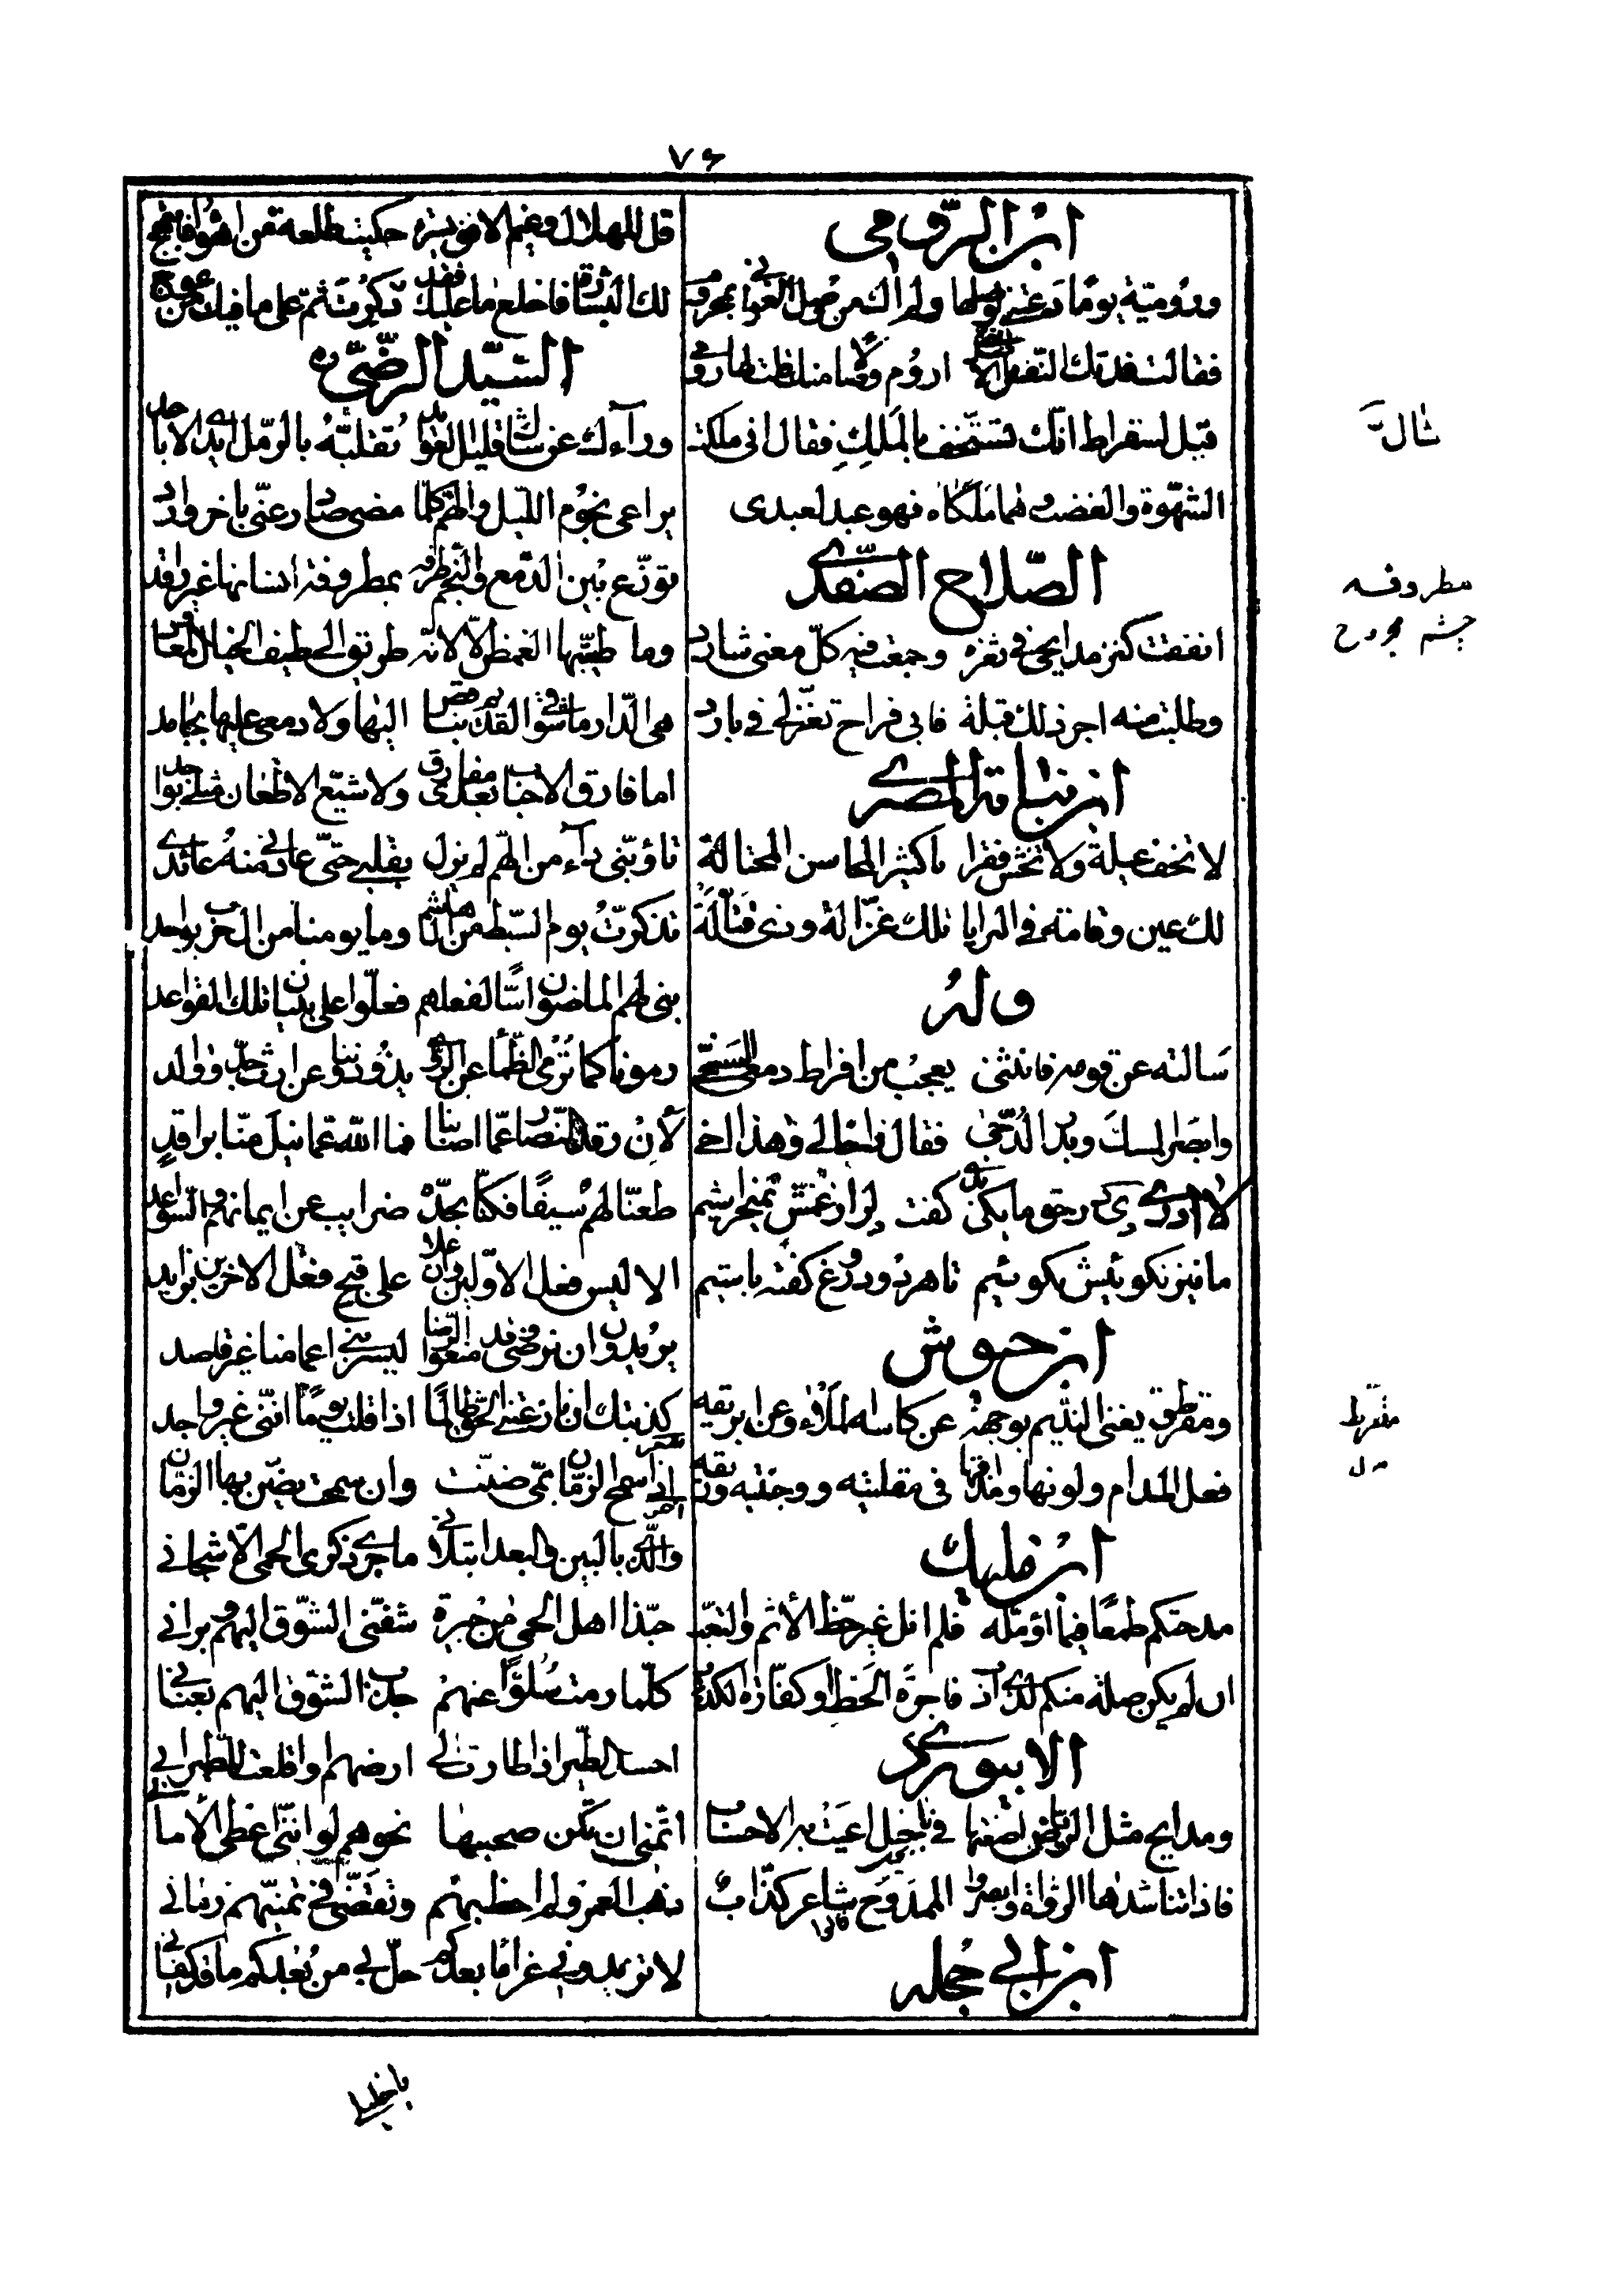 ٧٦
ابن الرومی
ورومیّة یومًا دعتنی لوصلها ولم اك من وصل الغوانی بمحروم
فقالت فدتك النفس ما الاصل اروم وصلا منك قلت لها رومی
قیل لسقراط انّك تستخف بالملك فقال انی ملکت
الشهوة والغضب وهما ملکاه فهو عبد لعبدی
الصّلاح الصّفدی
انفقت کنز مدایحی فی ثغره وجمعت فیه کلّ معنی شارد
وطلبت منه اجر ذلك قبلة فابی فراح تغزّلی فی بارد
ابن نباتة المصری
لا تخف عیلة ولا تخش فقرا یا کثیر المحاسن المحتالة
لك عین وقامة فی البرایا تلك غزّالة وذی فتّالة
وله
سالته عن قومه فانثنی یعجب من افراط دمعی السخیّ
وابصر المسك وبدر الدّجی فقال ذا خالی وهذا اخی
لا ادری
کی رحق ما بکن کفت ازغمش
ما نیز نکوئیش بکوئیم تا هر دو دروغ گفته باشیم
ابن حیوش
ومقرطق یغنی الندیم بوجهه عن کاسه الملأی وعن ابریقه
فعل المدام ولونها ومذاقها فی مقلتیه ووجنتیه وریقه
ابن ملیك
مدحتکم طمعًا فیما اؤمّله فلم انل غیر حظّ الأثم والتعب
ان لم یکن صلة منکم لذی ادب فاجرة الخط او کفّارة الکذب
الابیوردی
ومدایح مثل الریاض اضعتها فی باخل اعیت به الاحساب
فاذا تناشدها الرواة وابصروا الممدوح قالوا شاعر کذّاب
ابن ابی حجله
قل للهلال وغیم الافق یستره حکیت طلعة من اهواه فابتهج
لك البشارة فاخلع ما علیك فقد ذکرت ثمّ علی ما فیك من عوج
السّیّد الرضیّ ره
وراءك عن شاك قلیل العوائد تقلّبه بالرمل ایدی الاباعد
یراعی نجوم اللیل والهمّ کلّما مضی صادر عنّی باخر وارد
توزّع بین الدّمع والنجم طرفه بمطروفة انسانها غیر راقد
وما طبّها الغمض الّا لانّه طریق الی طیف الخیال المعاود
هی الدّار ما شوقی القدیم بناقص الیها ولا دمعی علیها بجامد
اما فارق الاحباب بعدی مفارق ولا شیّع الاظعان مثلی بواجد
تاوّبنی داء من الهمّ لم یزل بقلبی حتی عادنی منه عائدی
تذکرت یوم السبط من آل هاشم وما یومنا من آل حرب بواحد
بنی لهم الماضون اسًّا لفعلهم فعلّوا علی بنیان تلك القواعد
رمونا کما ترمی الظماء عن الروی یذودوننا عن ارث جدّ ووالد
لأن رقد النصار عمّا اصابنا فما الله عما نیل منّا براقد
طعنّا لهم سیفًا فکنّا بحدّه ضرایب عن ایمانهم والسّواعد
الا لیس فعل الاوّلین وان علا علی قبح فعل الاخرین بزاید
یریدون ان نرضی وقد منعوا الرضا لسیر بنی اعمامنا غیر قاصد
کذبتك ان نازعتنی الحقّ ظالمًا اذا قلت یومًا اننی غیر واجد
ایّ اسمح الزمان بها ضنّت وان سمحت یضنّ بها الزمان
والّذی بالبین والبعد ابتلانی ما جری ذکر الحمی الّا شجانی
حبّذا اهل الحمی من جیرة شفّنی الشوق الیهم وبرانی
کلّما رمت سلوًّا عنهم جذب الشوق الیهم بعنانی
احسد الطیر اذا طارت الی ارضهم او اقلعت للطیران
اتمنی ان تکن صحبتها نحوهم لو اننی اعطی الامانی
ذهب العمر ولم احظ بهم وتقضّی فی تمنّیهم زمانی
لا تزیدونی غرامًا بعدکم حلّ بی من بعدکم ما قد کفانی
مطروفه
چشم مجروح
مقرط
یا خلیلی